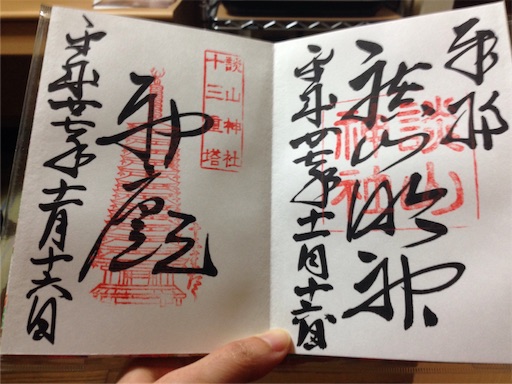 奉拝
談山明神
談山神社
平成廿七年十一月十六日
談山神社
十三重塔
神廟
平成廿七年十一月十六日